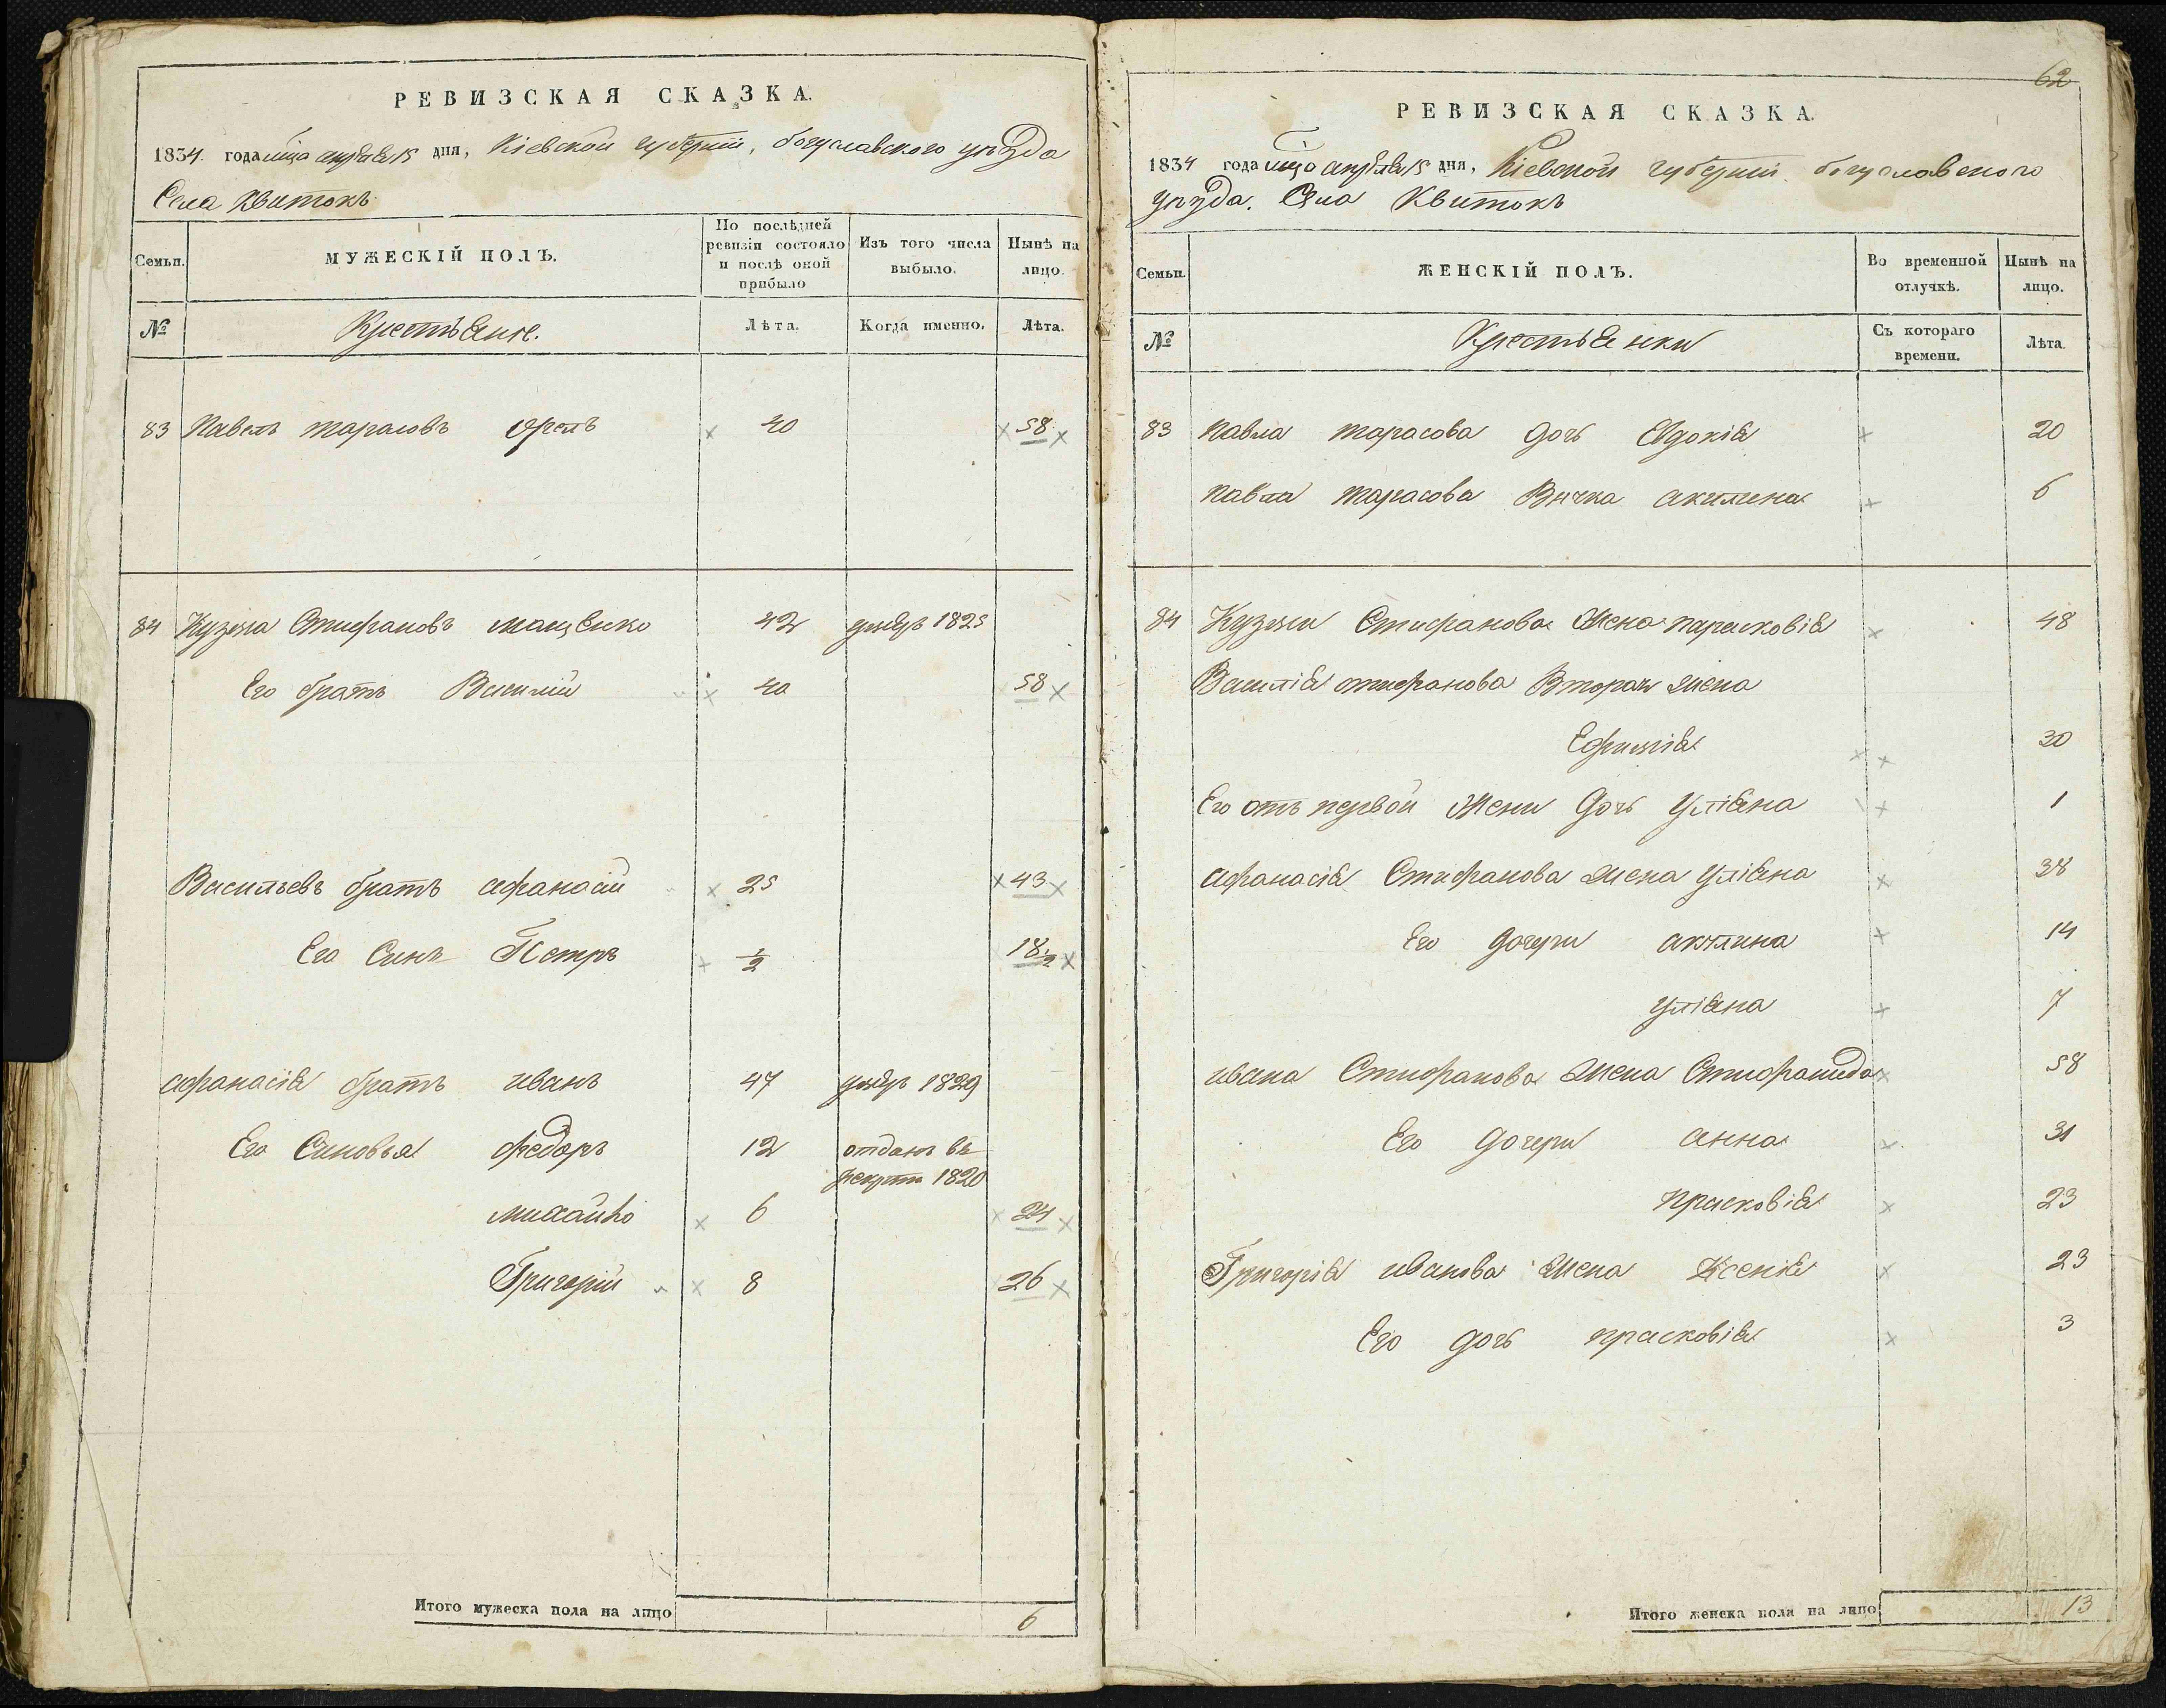 РЕВИЗСКАЯ СКАЗКА.
1834. года мца апреля 15 дня, Кіевской губерніи, богуславского уѣзда
Села Квитокъ
Семьи.
МУЖЕСКІЙ ПОЛЪ.
По послѣдней ревизіи состояло и послѣ оной прибыло
Изъ того числа выбыло.
Нынѣ на лицо.
№
Крестьяне.
Лѣта.
Когда именно.
Лѣта.
83 Павелъ Тарасовъ 40 58
84 Кузьма Стефановъ Мащенко 42 умеръ 1825
Его братъ Василий 40 58
Васильевъ братъ афанасий 25 43
Его Синъ Петръ 1/2 18 1/2
афанасія братъ иванъ 47 умеръ 1829
Его Синовья федоръ 12 отданъ въ
рекруты 1820
михайло 6 24
Григорій 8 26
Итого мужеска пола на лицо 6
62
РЕВИЗСКАЯ СКАЗКА.
1834 года мца апреля 15 дня, Кіевской губерніи богуславского
уѣзда. Села Квитокъ
Семьи.
ЖЕНСКІЙ ПОЛЪ.
Во временной отлучкѣ.
Нынѣ на лицо.
№
Крестьянки
Съ котораго времени.
Лѣта.
83 Павла Тарасова дочъ Евдокія 20
Павла Тарасова Внучка акилина 6
84 Кузьми Стефанова Жена парасковія 48
Василія стефанова Вторая жена
Ефимія 30
Его отъ первой Жени Дочъ Уліяна 1
афанасія Стефанова жена Уліяна 38
Его дочери акилина 14
уліяна 7
ивана Стефанова Жена Стефанида 58
Его дочери анна 31
прасковія 23
Григорія иванова жена Ксенія 23
Его дочъ прасковія 3
Итого женска пола на лицо 13